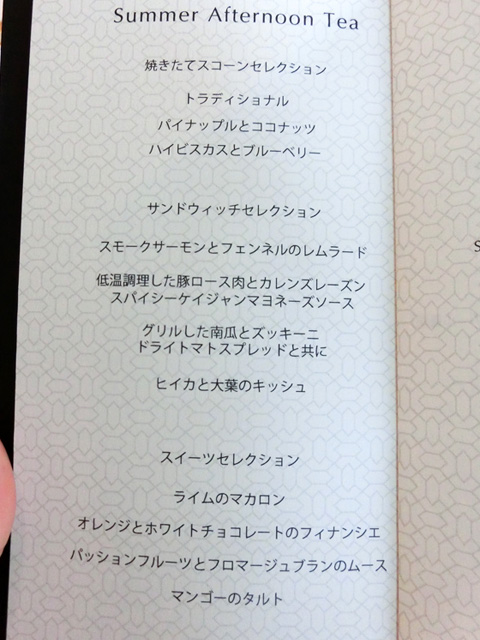 Summer Afternoon Tea
焼きたてスコーンセレクション
トラディショナル
パイナップルとココナッツ
ハイビスカスとブルーベリー
サンドウィッチセレクション
スモークサーモンとフェンネルのレムラード
低温調理した豚ロース肉とカレンズレーズン
スパイシーケイジャンマヨネーズソース
グリルした南瓜とズッキーニ
ドライトマトスプレッドと共に
ヒイカと大葉のキッシュ
スイーツセレクション
ライムのマカロン
オレンジとホワイトチョコレートのフィナンシエ
パッションフルーツとフロマージュブランのムース
マンゴーのタルト
S